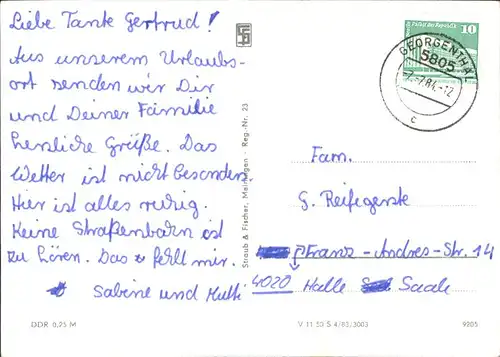 Liebe Tante Gertrud!
Aus unserem Urlaubs-
ort senden wir Dir
und Deiner Familie
herzliche Grüße. Das
Wetter ist nicht besonders.
Hier ist alles ruhig.
Keine Straßenbahn ist
zu hören. Das fehlt mir.
Sabine und Mutti
DDR 0,25 M
Straub & Fischer, Meiningen - Reg.-Nr. 23
V 11 50 S 4/83/3003
10
GEORGENTHAL
5805
-7.84.-12
c
Fam.
G. Reifegerste
Franz-Andres-Str. 14
4020 Halle Saale
9205